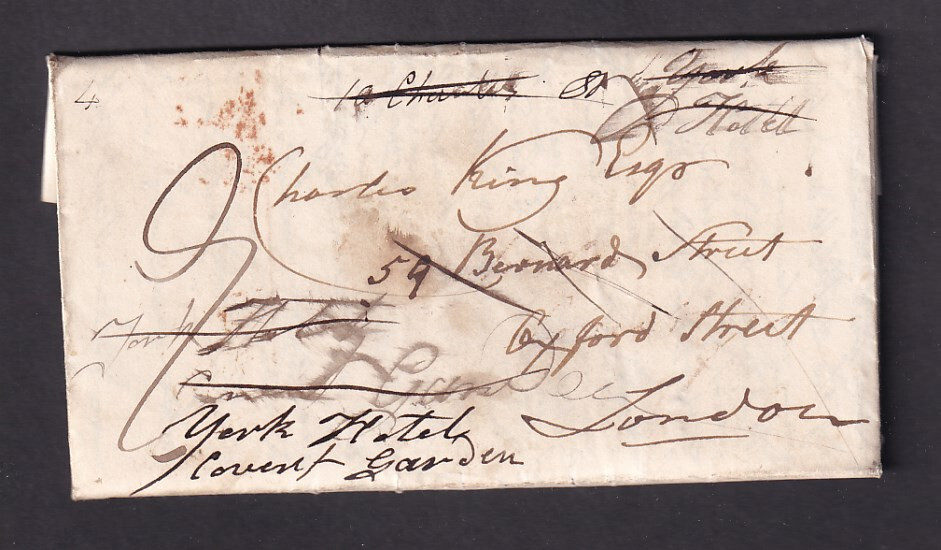 4
10 Charles St York
Hotel
Charles King Esqr
59 Bernard Street
York Hotel
Oxford Street
London
York Hotel
Covent Garden